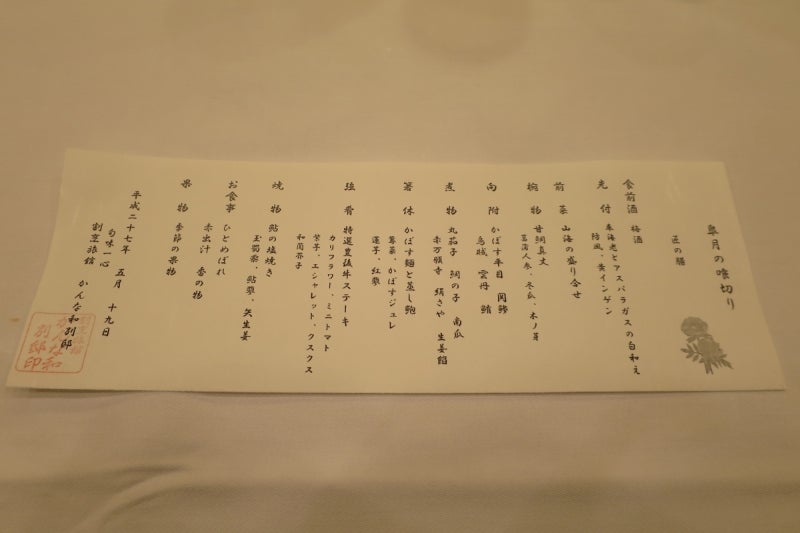 皐月の喰切り
匠の膳
食前酒 梅酒
先付 車海老とアスパラガスの白和え
防風、黄インゲン
前菜 山海の盛り合せ
椀物 甘鯛真丈
冬瓜、木ノ芽
向附 かぼす平目 関鯵
烏賊 雲丹 鮪
煮物 丸茄子 鯛の子 南瓜
赤万願寺 絹さや 生姜餡
箸休 かぼす麺と蒸し鮑
蓴菜、かぼすジュレ
蓮子、紅蓼
強肴 特選豊後牛ステーキ
カリフラワー、ミニトマト
紫子、エシャレット、クスクス
和風芥子
焼物 鮎の塩焼き
玉蜀黍、鮎蓼、矢生姜
お食事 ひとめぼれ
赤出汁 香の物
果物 季節の果物
平成二十七年 五月 十九日
旬味一心
割烹旅館 かんな和別邸
割烹旅館
かんな和
別邸印